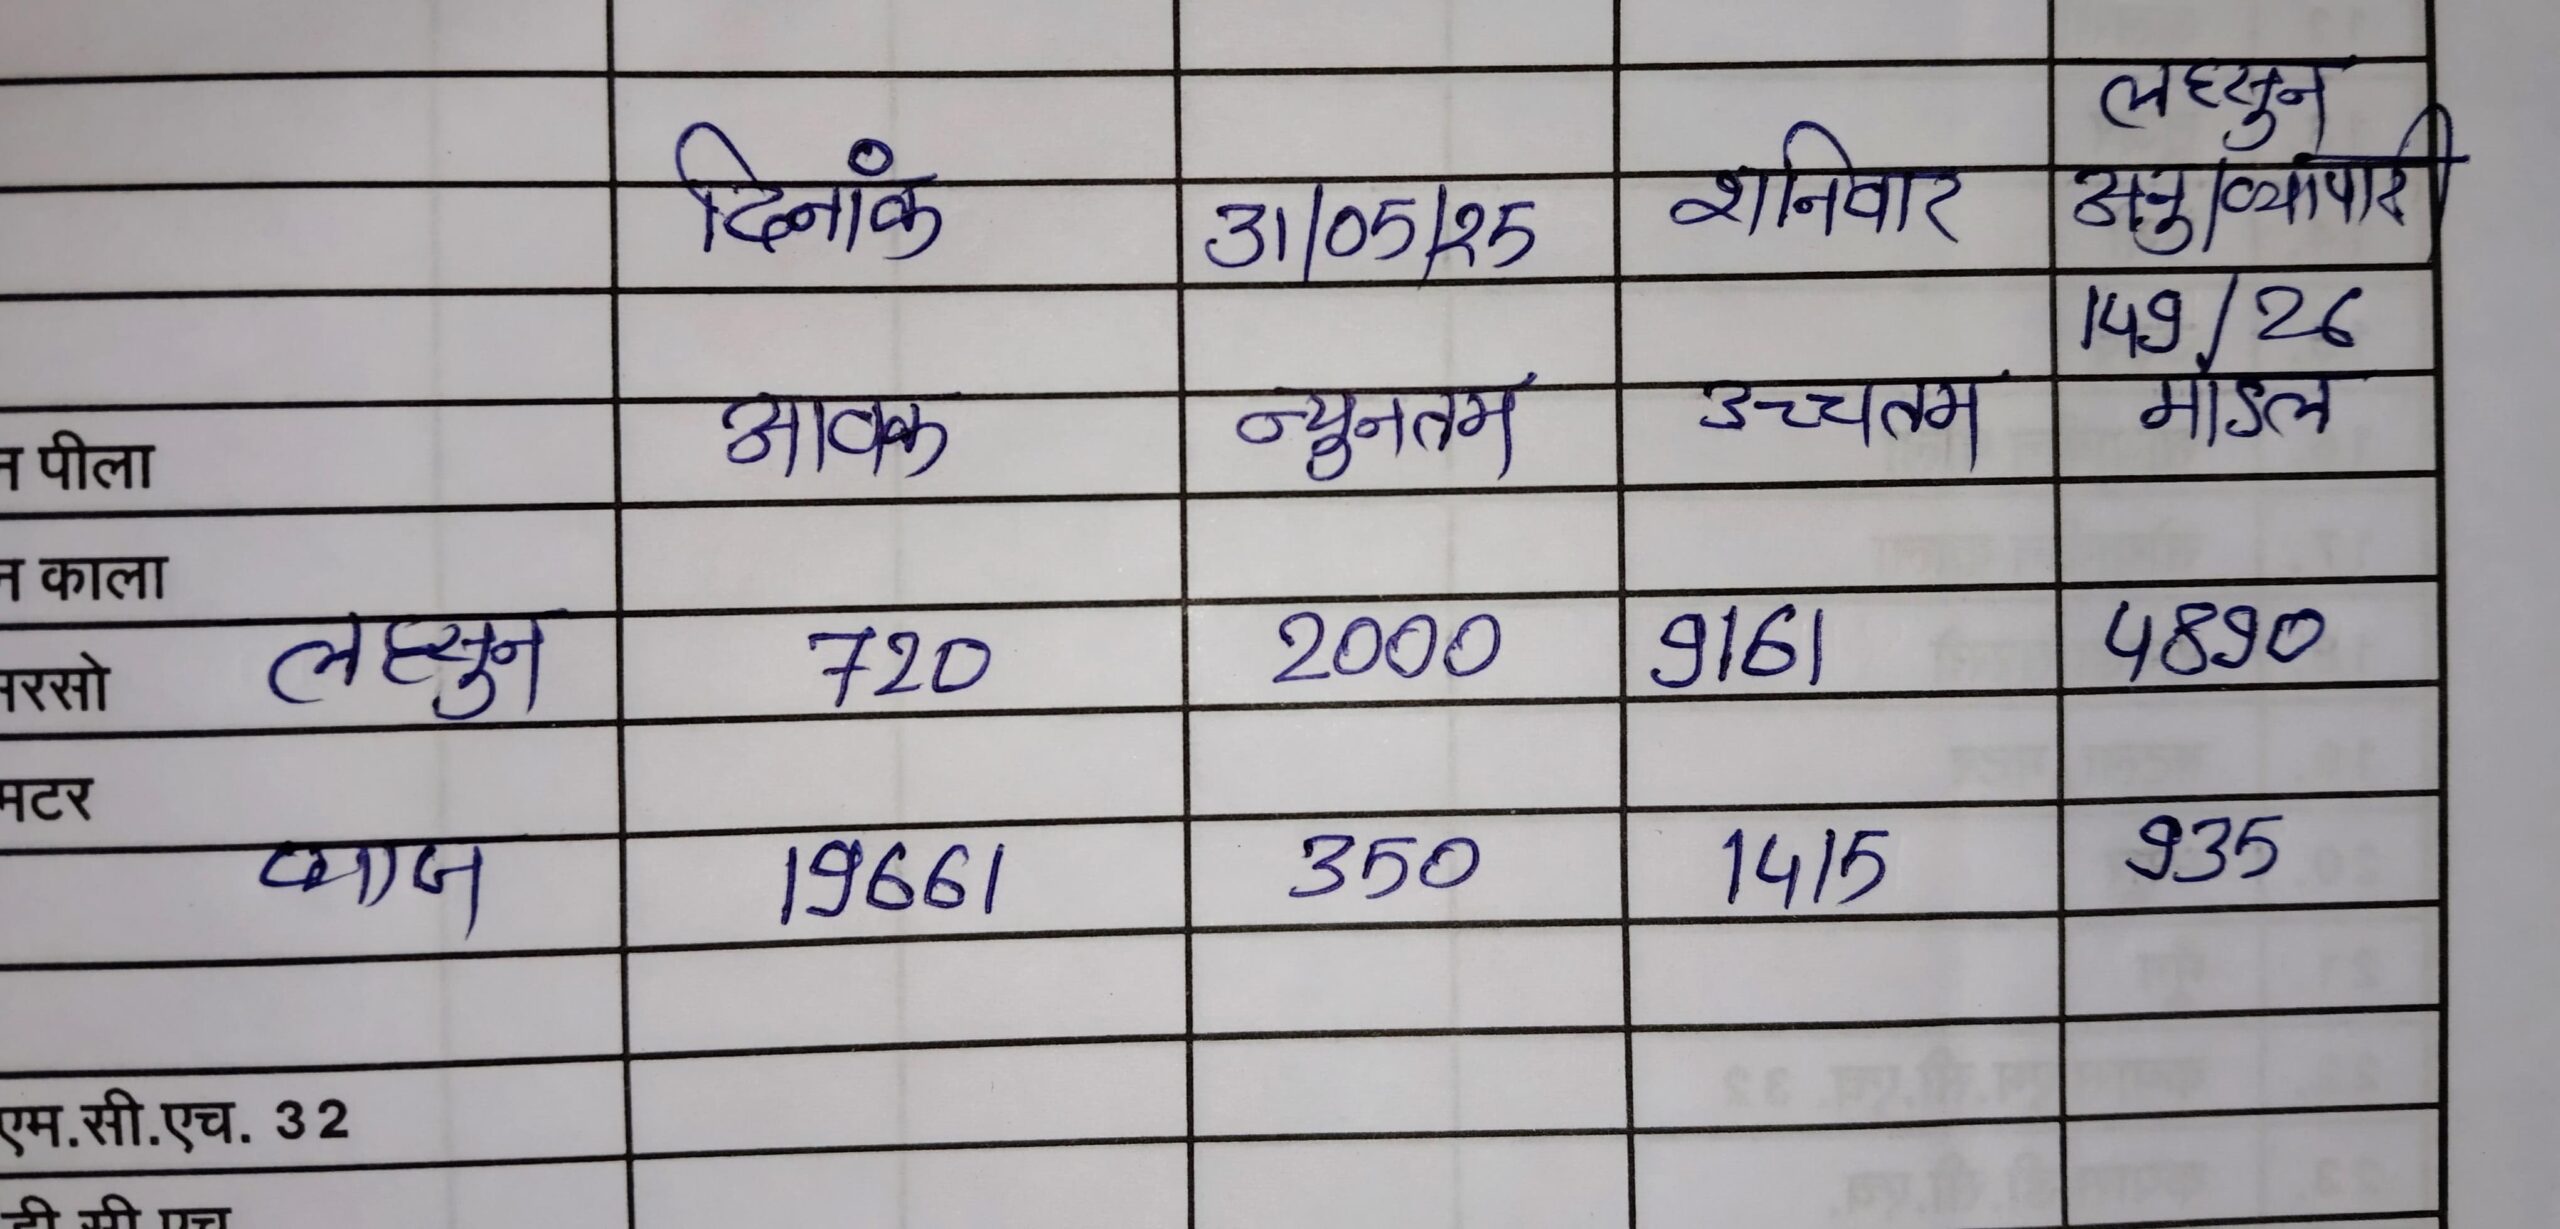 लहसुन
दिनांक 31/05/25 शनिवार अनु/व्यापारी
149/26
न पीला आवक न्युनतम उच्चतम मॉडल
न काला
सरसो लहसुन 720 2000 9161 4890
मटर
प्याज 19661 350 1415 935
एम.सी.एच. 32